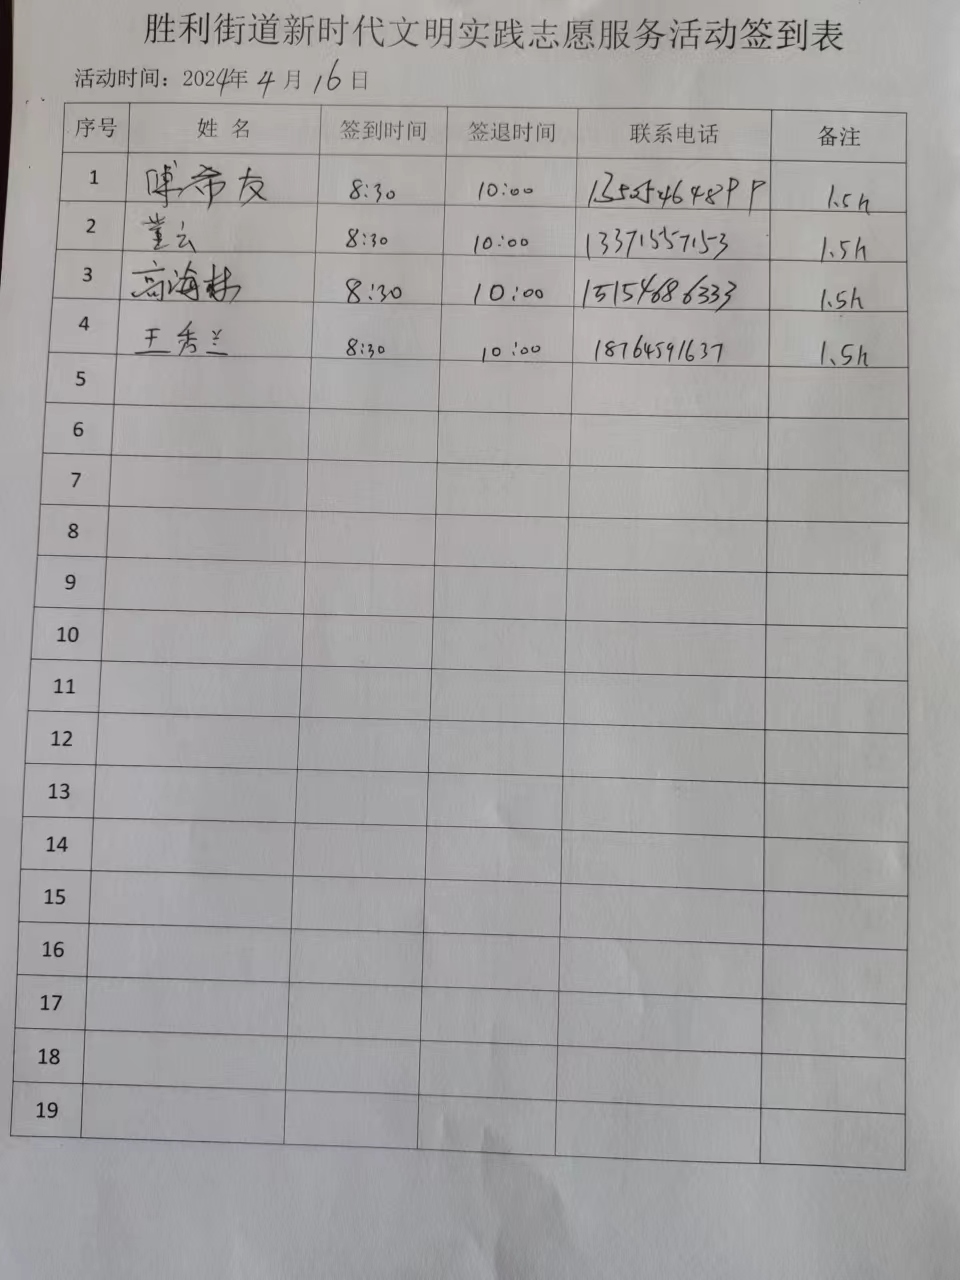 胜利街道新时代文明实践志愿服务活动签到表
活动时间：2024年 4 月 16 日
序号 姓 名 签到时间 签退时间 联系电话 备注
1 希友 8:30 10:00 1.5h
2 董云 8:30 10:00 13371557153 1.5h
3 高海林 8:30 10:00 15154686333 1.5h
4 王秀兰 8:30 10:00 18764591637 1.5h
5
6
7
8
9
10
11
12
13
14
15
16
17
18
19